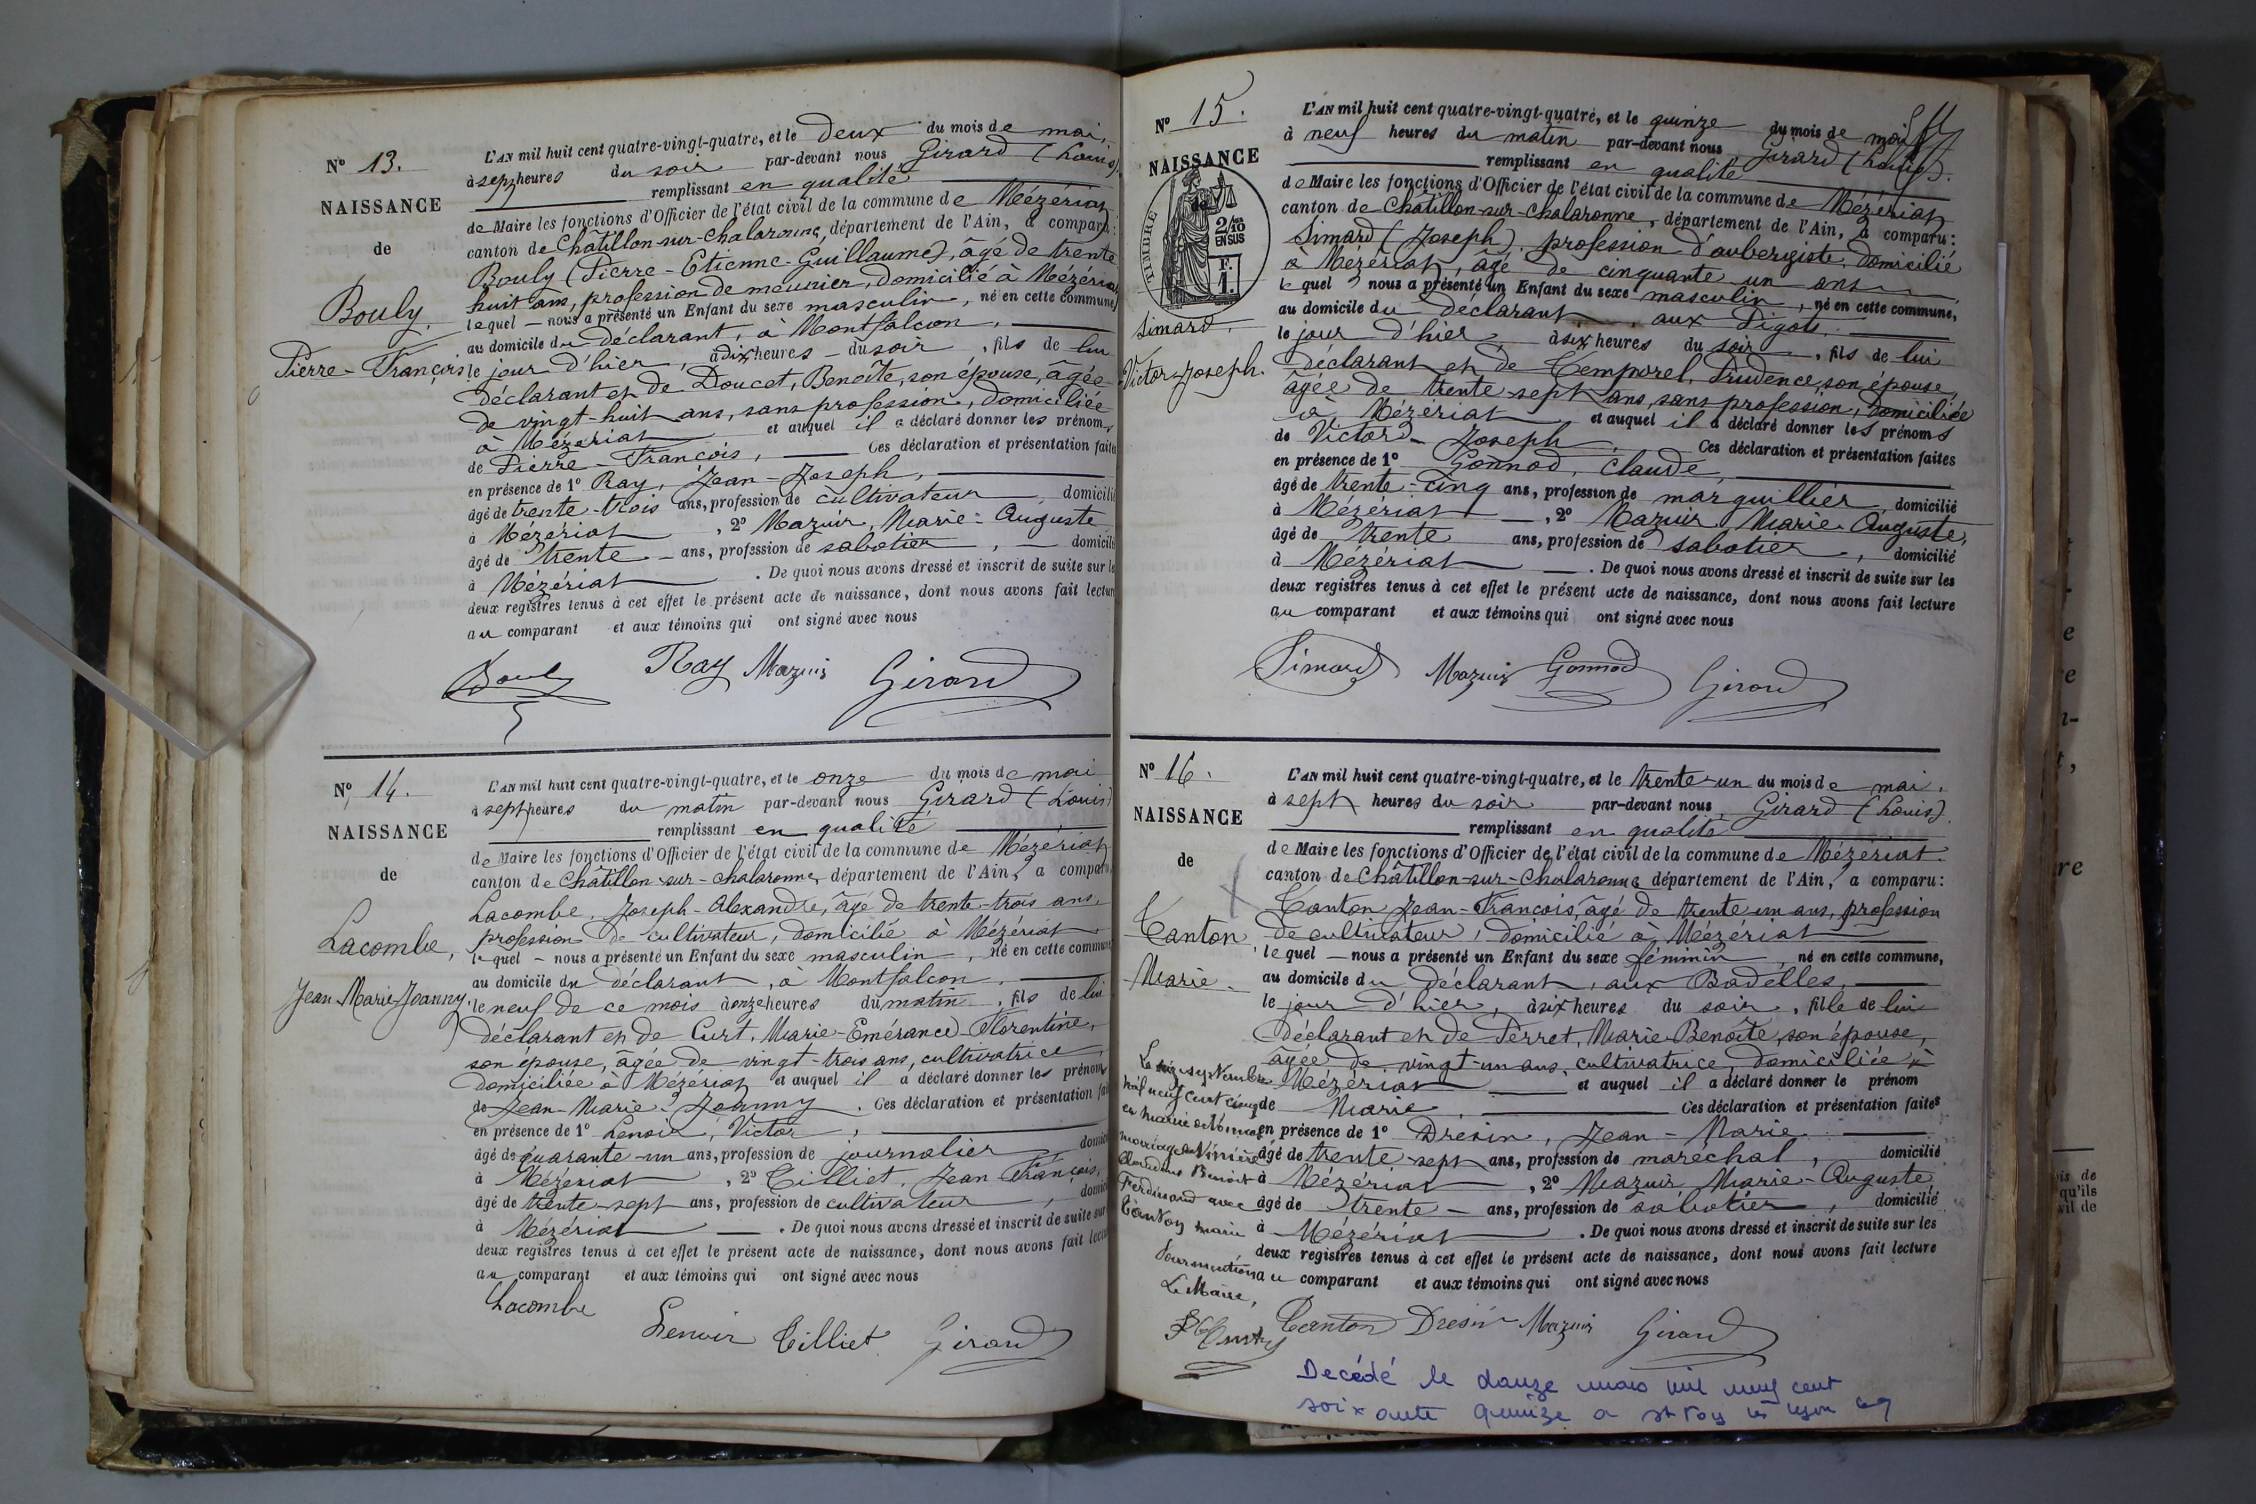 N° 13.
NAISSANCE
de
Bouly.
Pierre-François
L'AN mil huit cent quatre-vingt-quatre, et le deux du mois de mai,
à sept heures du soir par-devant nous Girard (Louis)
remplissant en qualité
de Maire les fonctions d'Officier de l'état civil de la commune de Mézériat
canton de Châtillon-sur-Chalaronne, département de l'Ain, a comparu:
Bouly (Pierre-Etienne-Guillaume), âgé de trente
huit ans, profession de meunier, domicilié à Mézériat
lequel — nous a présenté un Enfant du sexe masculin, né en cette commune,
au domicile du déclarant, à Montfalcon,
le jour d'hier, à dix heures - du soir, fils de lui
déclarant et de Doucet, Benoîte, son épouse, âgée
de vingt-huit ans, sans profession, domiciliée
à Mézériat et auquel il a déclaré donner les prénoms
de Pierre-François, Ces déclaration et présentation faites
en présence de 1° Ray, Jean-Joseph,
âgé de trente-trois ans, profession de cultivateur, domicilié
à Mézériat, 2° Mazuir, Marie-Auguste
âgé de trente - ans, profession de sabotier, - domicilié
à Mézériat. De quoi nous avons dressé et inscrit de suite sur les
deux registres tenus à cet effet le présent acte de naissance, dont nous avons fait lecture
au comparant et aux témoins qui ont signé avec nous
Bouly Ray Mazuir Girard
N° 14.
NAISSANCE
de
Lacombe,
Jean-Marie-Joanny.
L'AN mil huit cent quatre-vingt-quatre, et le onze du mois de mai
à sept heures du matin par-devant nous Girard (Louis)
remplissant en qualité
de Maire les fonctions d'Officier de l'état civil de la commune de Mézériat
canton de Châtillon-sur-Chalaronne, département de l'Ain, a comparu
Lacombe, Joseph-Alexandre, âgé de trente-trois ans,
profession de cultivateur, domicilié à Mézériat
lequel - nous a présenté un Enfant du sexe masculin, né en cette commune
au domicile du déclarant, à Montfalcon,
le neuf de ce mois à onze heures du matin, fils de lui
déclarant et de Curt, Marie-Emérance-Florentine,
son épouse, âgée de vingt-trois ans, cultivatrice,
domiciliée à Mézériat et auquel il a déclaré donner les prénoms
de Jean-Marie-Joanny. Ces déclaration et présentation
en présence de 1° Lenoir, Victor,
âgé de quarante-un ans, profession de journalier
à Mézériat, 2° Tilliet, Jean François,
âgé de trente-sept ans, profession de cultivateur,
à Mézériat. De quoi nous avons dressé et inscrit de suite sur
deux registres tenus à cet effet le présent acte de naissance, dont nous avons fait lecture
au comparant et aux témoins qui ont signé avec nous
Lacombe Lenoir Tilliet Girard
N° 15.
NAISSANCE
de
TIMBRE
2/10
EN SUS
F.
1.
Simard,
Victor-Joseph.
L'AN mil huit cent quatre-vingt-quatre, et le quinze du mois de mai
à neuf heures du matin par-devant nous Girard (Louis).
remplissant en qualité
de Maire les fonctions d'Officier de l'état civil de la commune de Mézériat
canton de Châtillon-sur-Chalaronne, département de l'Ain, a comparu:
Simard (Joseph), profession d'aubergiste, domicilié
à Mézériat, âgé de cinquante un ans
lequel nous a présenté un Enfant du sexe masculin, né en cette commune,
au domicile du déclarant, aux
le jour d'hier, à six heures du soir, fils de lui
déclarant et de Temporel, Prudence, son épouse,
âgée de trente-sept ans, sans profession, domiciliée
à Mézériat et auquel il a déclaré donner les prénoms
de Victor-Joseph, Ces déclaration et présentation faites
en présence de 1° Gonnod, Claude,
âgé de trente-cinq ans, profession de marguillier, domicilié
à Mézériat, 2° Mazuir, Marie-Auguste,
âgé de trente ans, profession de sabotier, domicilié
à Mézériat. De quoi nous avons dressé et inscrit de suite sur les
deux registres tenus à cet effet le présent acte de naissance, dont nous avons fait lecture
au comparant et aux témoins qui ont signé avec nous
Simard Mazuir Gonnod Girard
N° 16.
NAISSANCE
de
Tanton,
Marie.
L'AN mil huit cent quatre-vingt-quatre, et le trente-un du mois de mai.
à sept heures du soir par-devant nous Girard (Louis).
remplissant en qualité
de Maire les fonctions d'Officier de l'état civil de la commune de Mézériat.
canton de Châtillon-sur-Chalaronne département de l'Ain, a comparu:
Tanton Jean-François, âgé de trente un ans, profession
de cultivateur, domicilié à Mézériat
lequel — nous a présenté un Enfant du sexe féminin, né en cette commune,
au domicile du déclarant, aux Badelles,
le jour d'hier, à six heures du soir, fille de lui
déclarant et de Perret, Marie-Benoîte, son épouse,
âgée de vingt-un ans, cultivatrice, domiciliée à
Mézériat et auquel il a déclaré donner le prénom
de Marie, Ces déclaration et présentation faites
en présence de 1° Dresin, Jean-Marie.
âgé de trente-sept ans, profession de maréchal, domicilié
à Mézériat, 2° Mazuir, Marie-Auguste
âgé de trente - ans, profession de sabotier, domicilié
à Mézériat. De quoi nous avons dressé et inscrit de suite sur les
deux registres tenus à cet effet le présent acte de naissance, dont nous avons fait lecture
au comparant et aux témoins qui ont signé avec nous
Tanton Dresin Mazuir Girard
Le septembre
mil neuf cent cinq
en mairie de
mariage de
Claudius Benoit
Ferdinand avec
Tanton Marie
Pour mention
Le Maire,
Decédé le douze mars mil neuf cent
soixante quinze a st Foy les Lyon 69